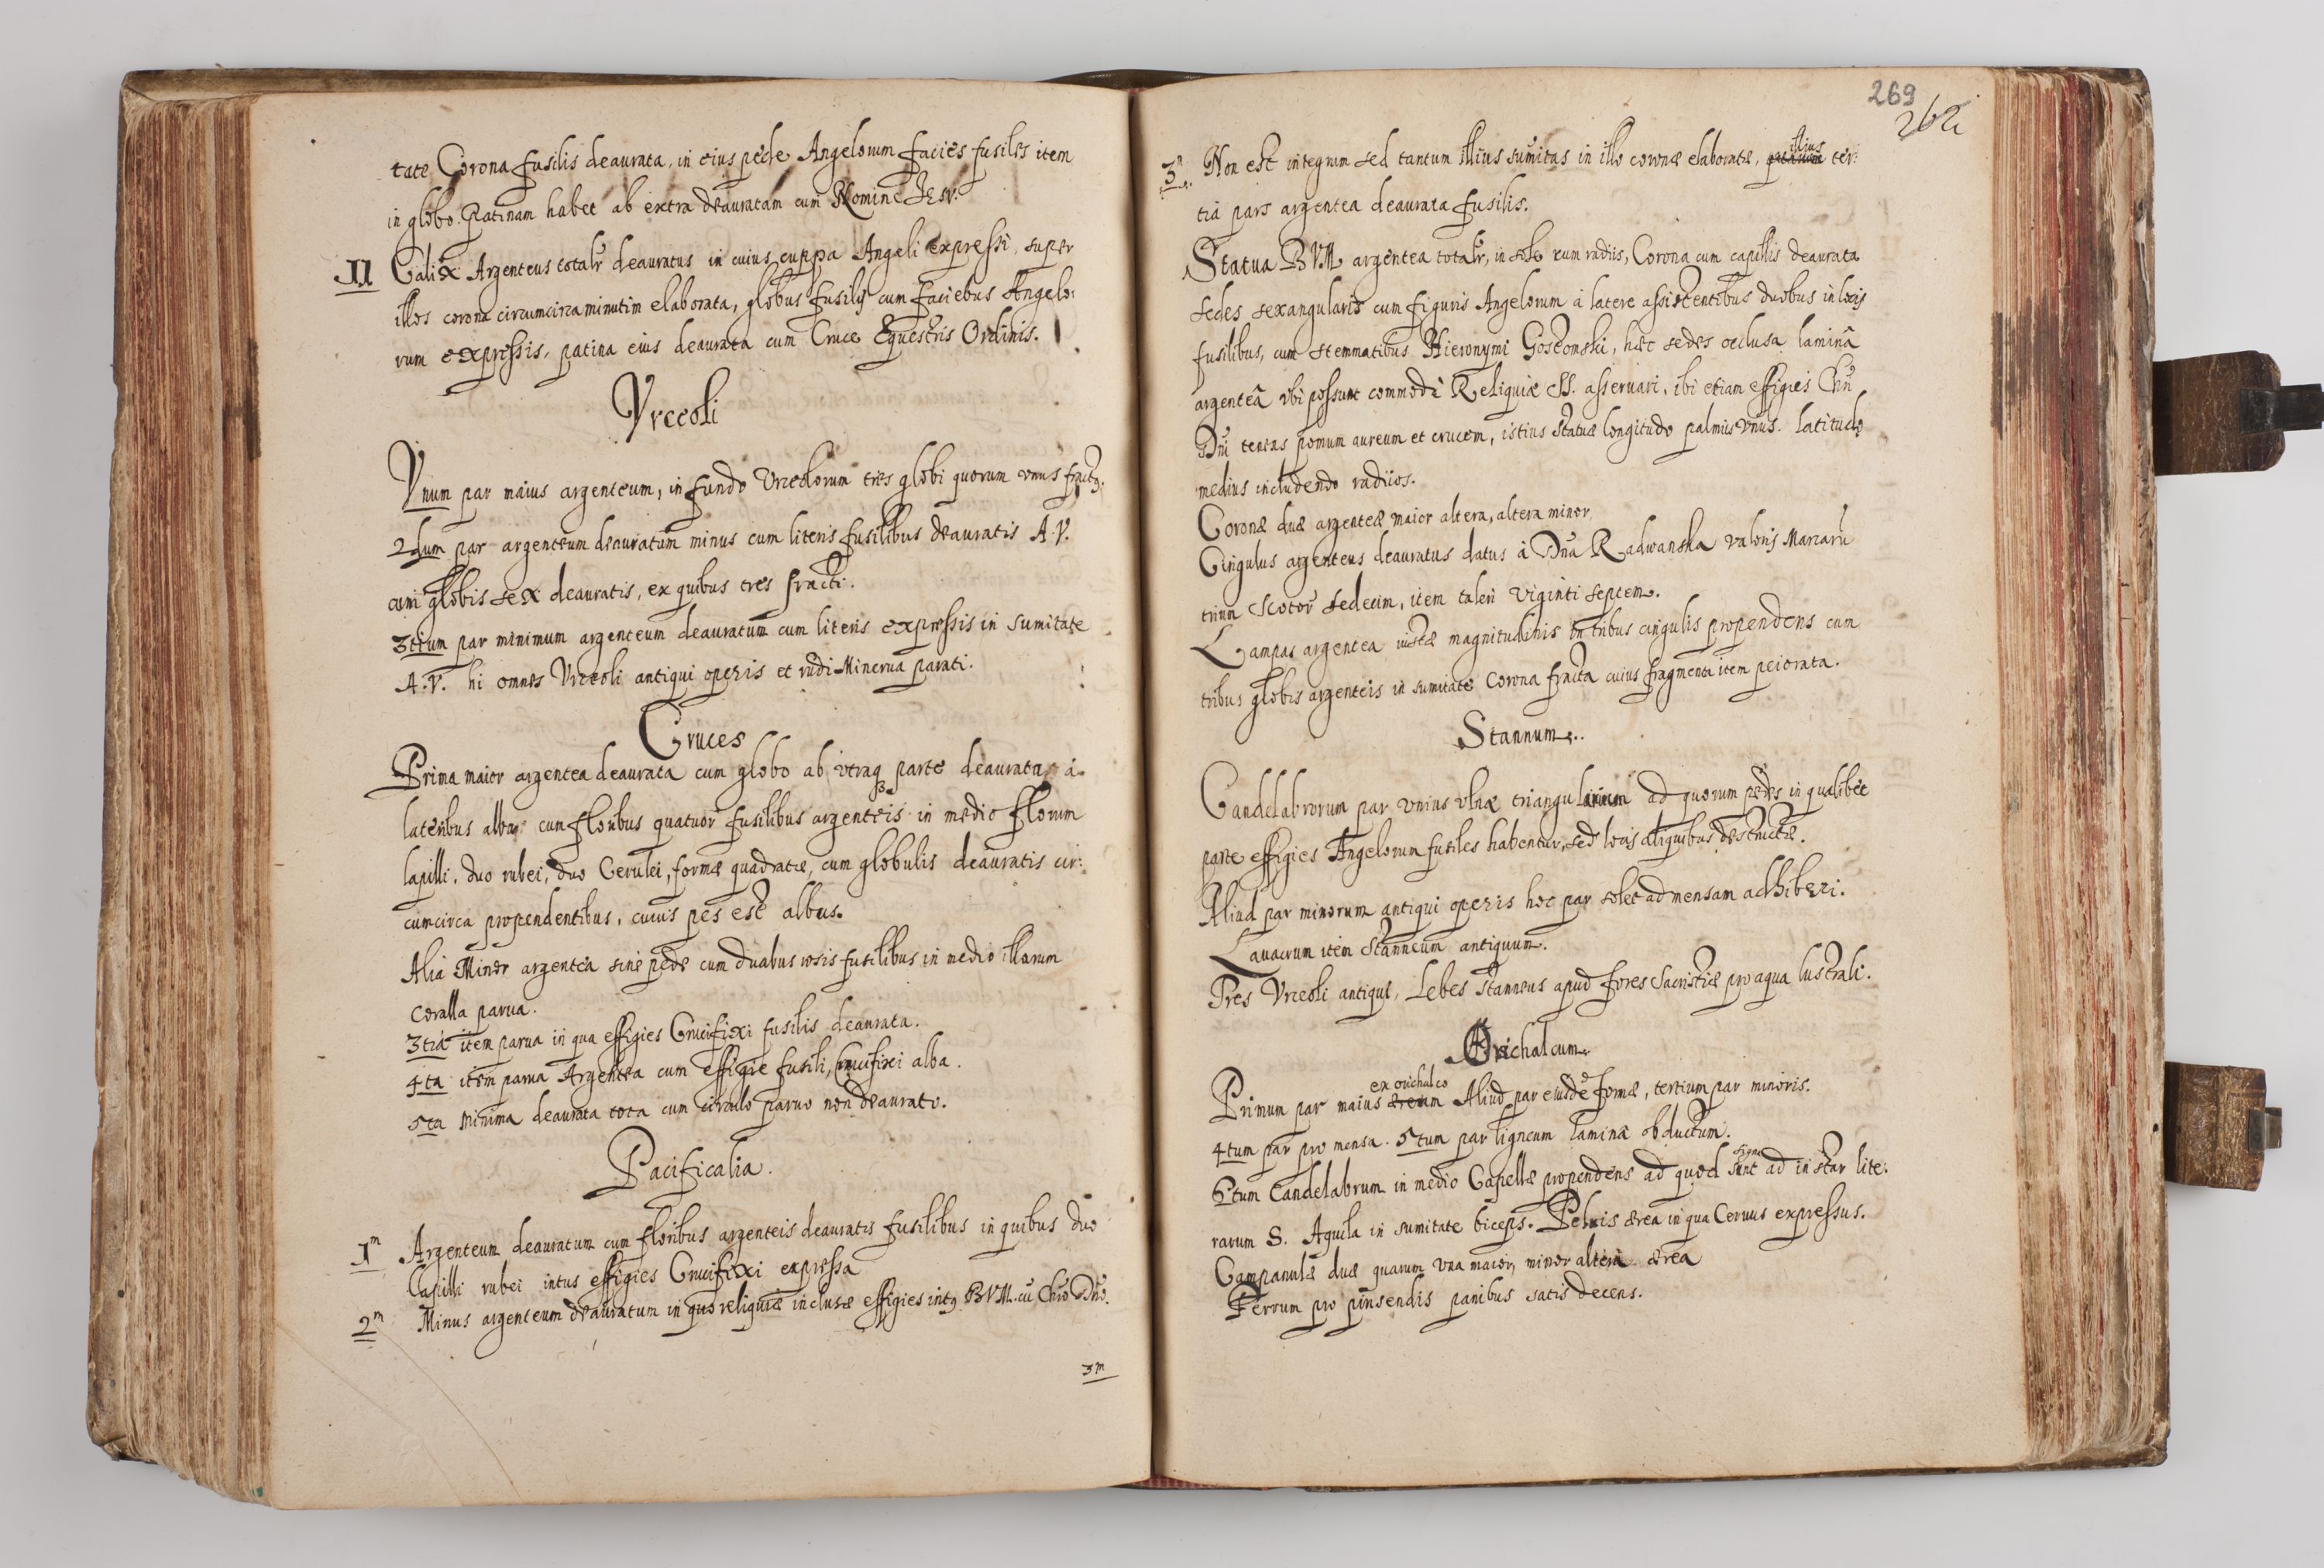 tate Corona fusilis deaurata, in eius pede Angelorum facies fusiles item
in globo. Patinam habet ab extra deauratam cum Nomine Jesv.
II Calix Argenteus totalr deauratus in cuius cuppa Angeli expressi, super
illos corona circumcirca minutim elaborata, globus fusilis cum faciebus Angelo:
rum expressis, patina eius deaurata cum Cruce Equestris Ordinis.
Vrceoli
Vnum par maius argenteum, in fundo Urceolorum tres globi quorum vnus fract9.
2dum par argenteum deauratum minus cum literis fusilibus deauratis A.V.
cum globis sex deauratis, ex quibus tres fracti.
3tium par minimum argenteum deauratum cum literis expressis in sumitate
A.V. hi omnes Vrceoli antiqui operis et rudi Minerua parati.
Cruces
Prima maior argentea deaurata cum globo ab vtraq3 parte deaurata, à
lateribus alba cum floribus quatuor fusilibus argenteis in medio florum
lapilli. duo rubei, duo Cerulei, formæ quadratæ, cum globulis deauratis cir:
cumcirca propendentibus, cuius pes est albus.
Alia Minor argentea sine pede cum duabus rosis fusilibus in medio illarum
Coralla parua.
3tia item parua in qua effigies Crucifixi fusilis deaurata.
4ta item parua Argentea cum effigie fusili, Crucifixi alba.
5ta minima deaurata tota cum circulo paruo non deaurato.
Pacificalia.
1m Argenteum deauratum cum floribus argenteis deauratis fusilibus in quibus duo
lapilli rubei intus effigies Crucifixi expressa
2m Minus argenteum deauratum in quo reliquiæ inclusæ effigies int9 BVM. cū Chro Dno.
3m
269
3m Non est integrum sed tantum illius sumitas in illo coronæ elaboratæ, illius ter:
tia pars argentea deaurata fusilis.
Statua BVM argentea totalr, in sole cum radiis, Corona cum capillis deaurata
sedes sexangularis cum figuris Angelorum à latere assistentibus duobus in locis
fusilibus, cum stemmatibus Hieronymi Gostomski, hæc sedes occlusa laminâ
argenteâ vbi possunt commodè Reliquiæ SS. asseruari, ibi etiam effigies Chri
Dni tenens pomum aureum et crucem, istius statuæ longitudo palmus vnus. Latitudo
medius includendo radios.
Coronæ duæ argenteæ maior altera, altera minor.
Cingulus argenteus deauratus datus à Dna Radwanska valoris Marcarū
trium Scotorū sedecim, item taleri viginti septem.
Lampas argentea iustæ magnitudinis in tribus cingulis propendens cum
tribus globis argenteis in sumitate Corona fracta cuius fragmenta item peiorata.
Stannum.
Candelabrorum par vnius vlnæ triangularium ad quorum pedes in qualibet
parte effigies Angelorum fusiles habentur, sed locis aliquibus destructæ.
Aliud par minorum antiqui operis hoc par solet ad mensam adhiberi.
Lauacrum item stanneum antiquum.
Tres Vrceoli antiqui, Lebes stanneus apud fores Sacristiæ pro aqua lustrali.
Orichalcum.
Primum par maius ex orichalco Aliud par eiusdē formæ, tertium par minoris.
4tum par pro mensa. 5tum par ligneum laminâ obductum.
6tum Candelabrum in medio Capellæ propendens ad quod sunt ad instar lite:
rarum S. Aquila in sumitate biceps. Peluis ærea in qua Ceruus expressus.
Campanulæ duæ quarum vna maior, minor altera ærea
Ferrum pro pinsendis panibus satis decens.